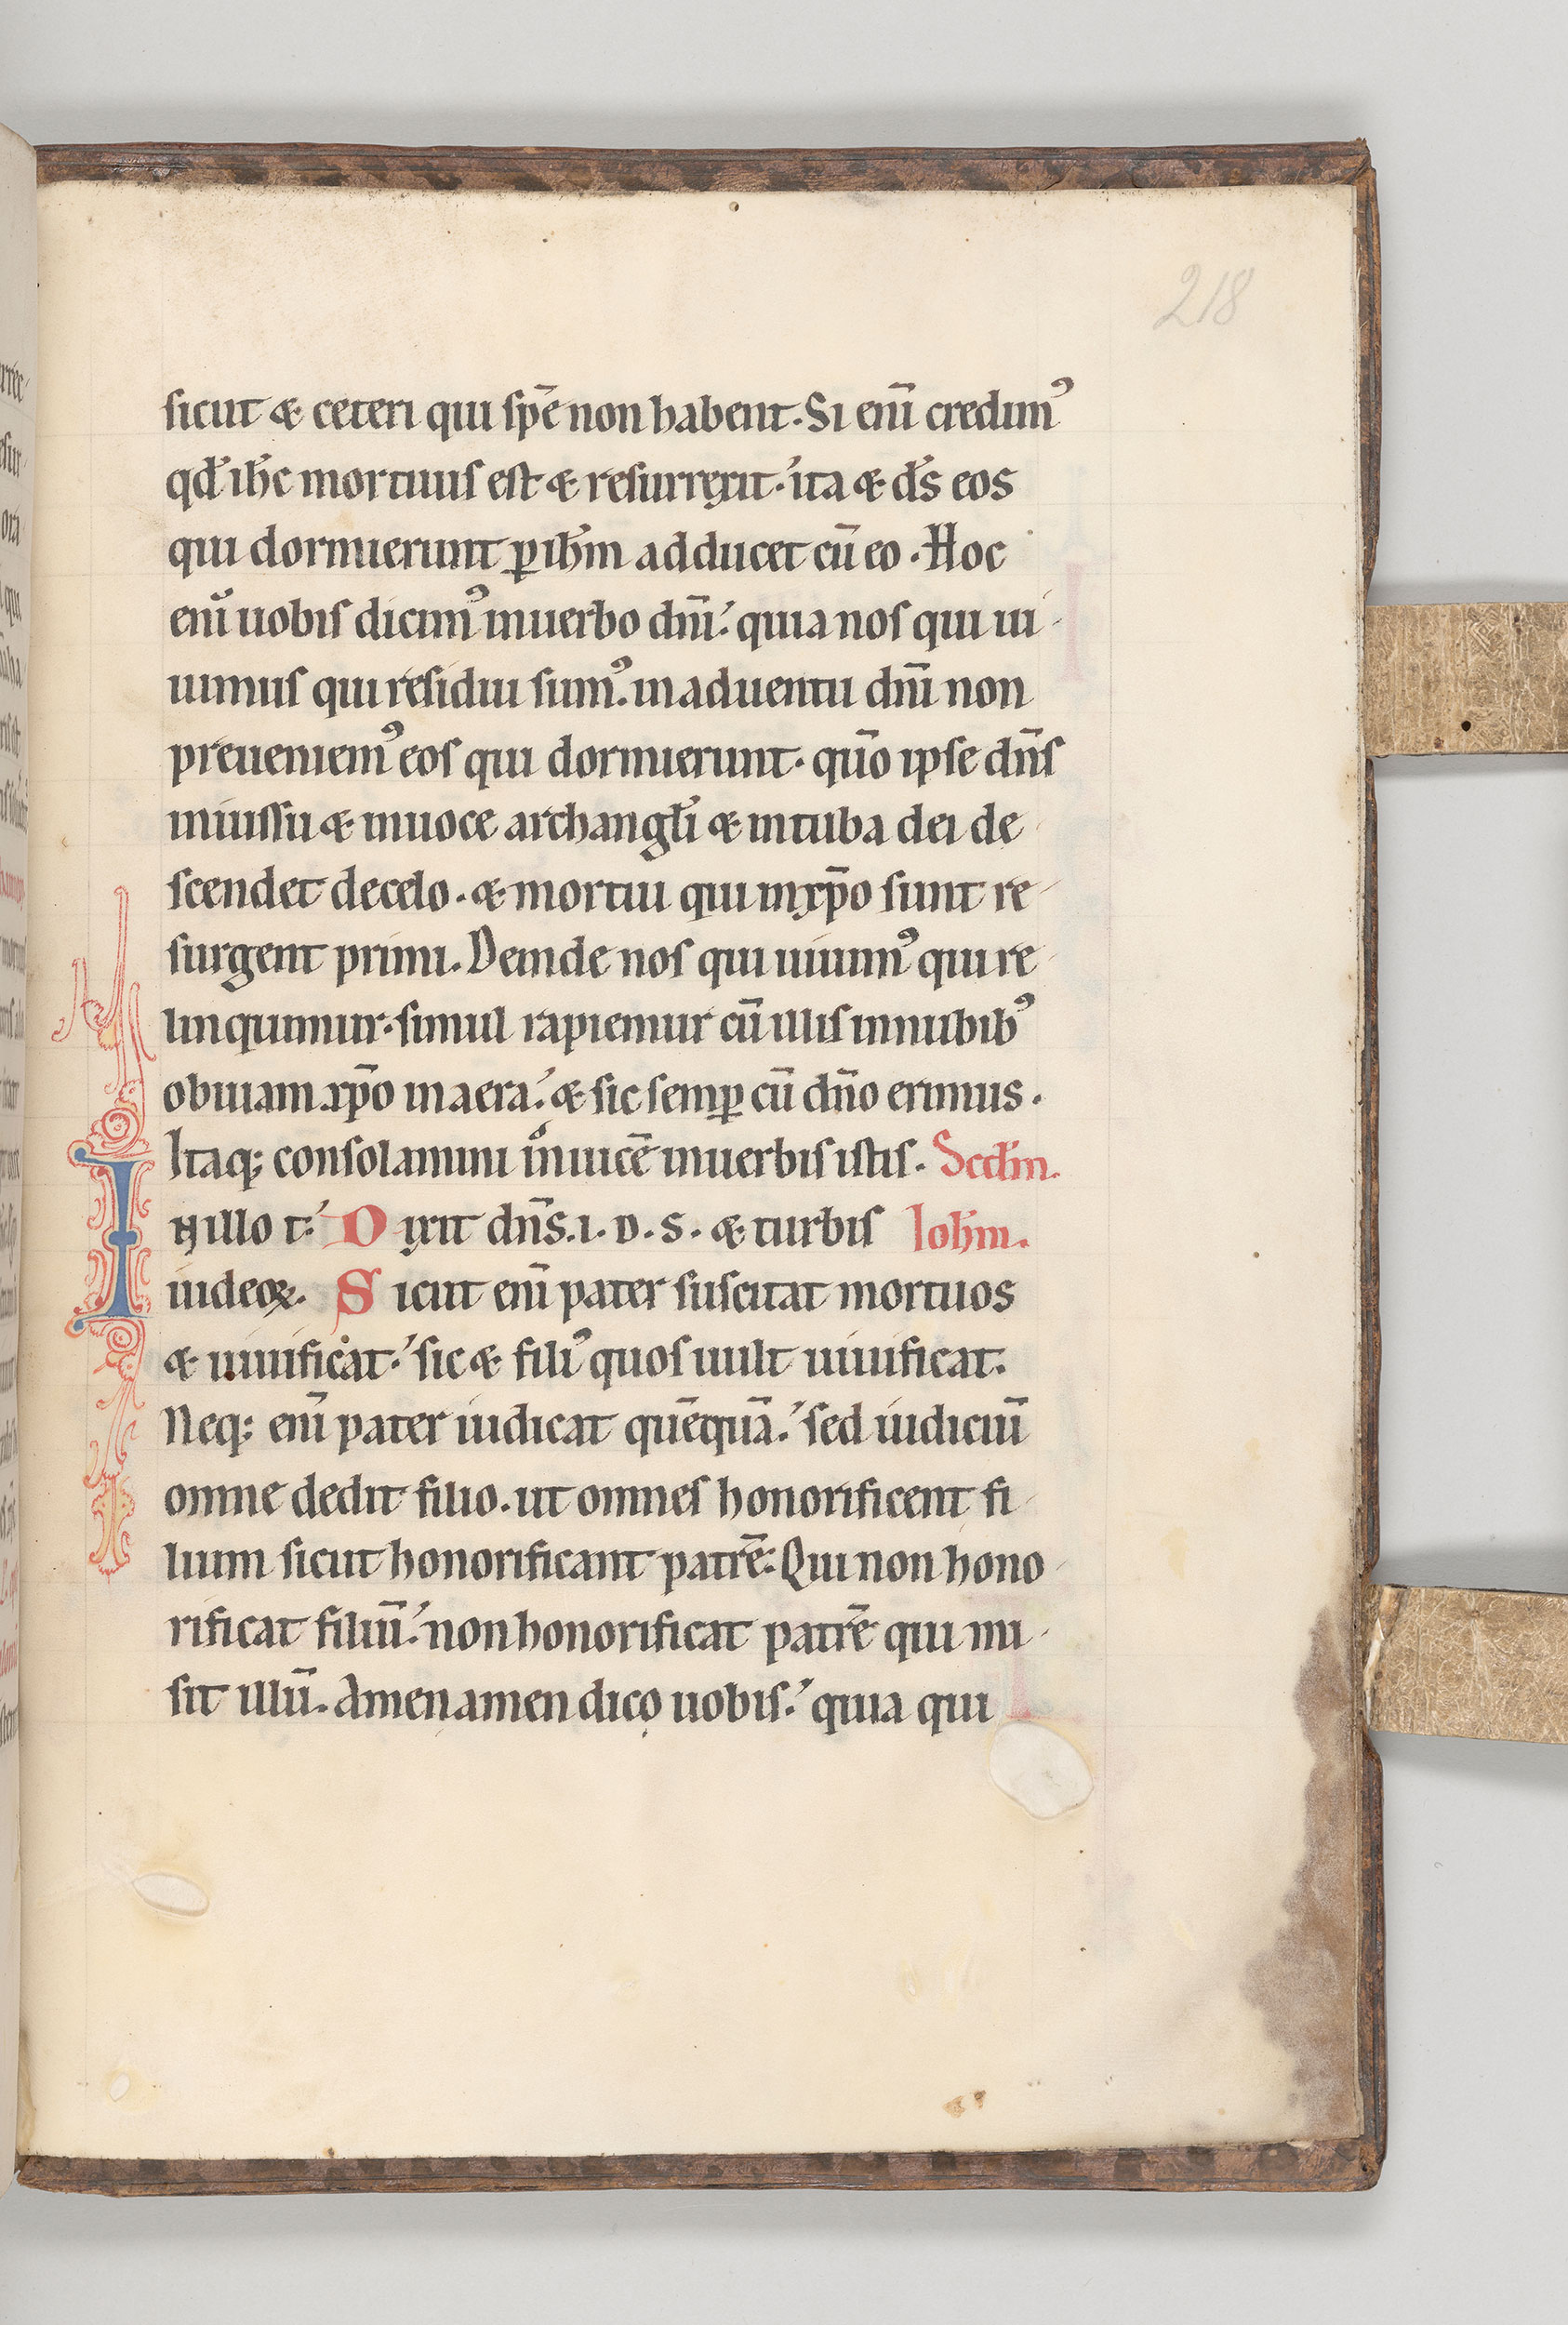 218
sicut & ceteri qui spē non habent. Si enī credim᾽
qd̄ ih̄c mortuus est & resurrexit. ita & d̄s eos
qui dormierunt ꝑ ih̄m adducet cū eo. Hoc
enī uobis dicim᾽ in uerbo dn̄i. quia nos qui ui-
uimus qui residui sum᾽. in aduentu dn̄i non
preueniem᾽ eos qui dormierunt. qūo ipse dn̄s
in iussu & in uoce archangl̄i & in tuba dei de-
scendet de celo. & mortui qui in xp̄o sunt re-
surgent primi. Deinde nos qui uiuim᾽ qui re-
linquimur. simul rapiemur cū illis in nubib᾽
obuiam xp̄o in aera. & sic semꝑ cū dn̄o erimus.
Itaq; consolamini in inuicē in uerbis istis. Scd̄m
IN illo t. Dixit dn̄s. i. d. s. & turbis Ioh̄m.
iudeoꝝ. Sicut enī pater suscitat mortuos
& uiuificat. sic & fili᾽ quos uult uiuificat.
Neq; enī pater iudicat quēquā. sed iudiciū
omne dedit filio. ut omnes honorificent fi-
lium sicut honorificant patrē. Qui non hono-
rificat filiū. non honorificat patrē qui mi-
sit illū. Amen amen dico uobis. quia qui